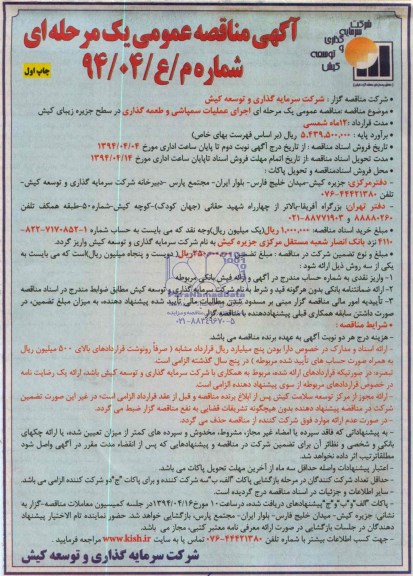 شرکت
سرمایه
گذاری
و
توسعه
کیش
آگهی مناقصه عمومی یک مرحله ای
شماره م/ع/۹۴/۰۴
چاپ اول
شرکت مناقصه گزار : شرکت سرمایه گذاری و توسعه کیش
موضوع مناقصه :مناقصه عمومی یک مرحله ای اجرای عملیات سمپاشی و طعمه گذاری در سطح جزیره زیبای کیش
مدت قرارداد :۱۲ماه شمسی
برآورد پایه : ۵.۴۳۹.۵۰۰.۰۰۰ ریال (بر اساس فهرست بهای خاص)
تاریخ فروش اسناد مناقصه : از تاریخ درج آگهی نوبت دوم تا پایان ساعت اداری مورخ ۱۳۹۴/۰۴/۰۴
مدت تحویل اسناد مناقصه :از تاریخ اتمام مهلت فروش اسناد تاپایان ساعت اداری مورخ ۱۳۹۴/۰۴/۱۴
محل فروش اسنادمناقصه و تحویل پاکات :
- دفترمرکزی: جزیره کیش-میدان خلیج فارس- بلوار ایران- مجتمع پارس -دبیرخانه شرکت سرمایه گذاری و توسعه کیش-
تلفن ۴۴۴۲۱۳۸۰-۰۷۶
- دفتر تهران: بزرگراه آفریقا-بالاتر از چهارراه شهید حقانی (جهان کودک)-کوچه کیش-شماره ۵۰-طبقه همکف تلفن
۸۸۸۸۰۲۶۰ و ۸۸۷۷۱۹۰۳-۰۲۱
مبلغ خرید اسناد مناقصه: ۱.۰۰۰.۰۰۰ ریال(یک میلیون ریال)وجه نقد که می بایست به حساب شماره ۱-۷۱۷۰۸۵۲-۸۲۲-
۴۱۱۰ نزد بانک انصار شعبه مستقل مرکزی جزیره کیش به نام شرکت سرمایه گذاری و توسعه کیش واریز گردد.
مبلغ و نوع تضمین شرکت در مناقصه : مبلغ تضمین ریال( دویست و پنجاه میلیون ریال)است که می بایست به
یکی از سه روش ذیل ارائه شود :
۱- واریز نقدی به شماره حساب مندرج در آگهی و ارائه فیش بانکی مربوطه
۲- ارائه ضمانتنامه بانکی بدون هرگونه قید و شرط به نام شرکت سرمایه گذاری و توسعه کیش مطابق ضوابط مندرج در اسناد مناقصه
۳- تأییدیه امور مالی مناقصه گزار مبنی بر مسدود شدن مطالبات مالی تأیید شده پیشنهاد دهنده، به میزان مبلغ تضمین، در
صورت داشتن سابقه همکاری قبلی پیشنهاددهنده با مناقصه گزار
ParsNamadData
۰۲۱-۸۸۳۴۹۶۷۰-۵
شرایط مناقصه :
- هزینه درج هر دو نوبت آگهی به عهده برنده مناقصه می باشد.
- ارائه اسناد و مدارک در خصوص دارا بودن پنج میلیارد ریال قرارداد مشابه ( صرفاً رونوشت قراردادهای بالای ۵۰۰ میلیون ریال
به همراه صورت حساب های تأیید شده مربوطه ) در پنج سال گذشته الزامی است.
تبصره: در صورتیکه قراردادهای ارائه شده، مربوط به همکاری با شرکت سرمایه گذاری و توسعه کیش باشد، ارائه یک رضایت نامه
در خصوص قراردادهای مربوطه از سوی پیشنهاد دهنده الزامی است.
- ارائه مجوز از مرکز توسعه سلامت کیش پس از ابلاغ برنده مناقصه و قبل از عقد قرارداد الزامی است؛ در غیر این صورت تضمین
شرکت در مناقصه پیشنهاد دهنده بدون هیچگونه تشریفات قضایی به نفع مناقصه گزار ضبط می گردد.
- در صورت عدم ارائه موارد فوق شرکت کننده از مناقصه حذف می گردد.
- به پیشنهاداتی که فاقد سپرده یا امضاء غیر مجاز، مشروط، مخدوش و سپرده های کمتر از میزان تعیین شده، یا ارائه چکهای
بانکی و شخصی و نظائر آن برای تضمین شرکت در مناقصه و پیشنهادهایی که پس از انقضاء مدت مقرر در آگهی واصل شود
مطلقاً ترتیب اثر داده نخواهد شد.
- اعتبار پیشنهادات واصله حداقل سه ماه از آخرین مهلت تحویل پاکات می باشد.
- حداقل تعداد شرکت کنندگان در مرحله بازگشایی پاکات "الف، ب"سه شرکت کننده و برای پاکات "ج"دو شرکت کننده الزامی می باشد.
- سایر اطلاعات و جزئیات در اسناد مناقصه درج گردیده است.
- پاکات "الف"و"ب"و"ج"پیشنهادهای دریافت شده، درساعت ۱۰ مورخ۱۳۹۴/۰۴/۱۶در جلسه کمیسیون معاملات مناقصه-گزار به
نشانی: جزیره کیش- میدان خلیج فارس- بلوار ایران- مجتمع پارس، بازگشایی خواهد شد. حضور نماینده تام الاختیار پیشنهاد
دهندگان در جلسات بازگشایی در صورت ارائه معرفی نامه معتبر کتبی، مجاز می باشد.
- جهت کسب اطلاعات بیشتر با شماره تلفن ۴۴۴۲۱۳۸۰-۰۷۶ تماس یا به سایت www.kish.ir مراجعه فرمایید .
شرکت سرمایه گذاری و توسعه کیش